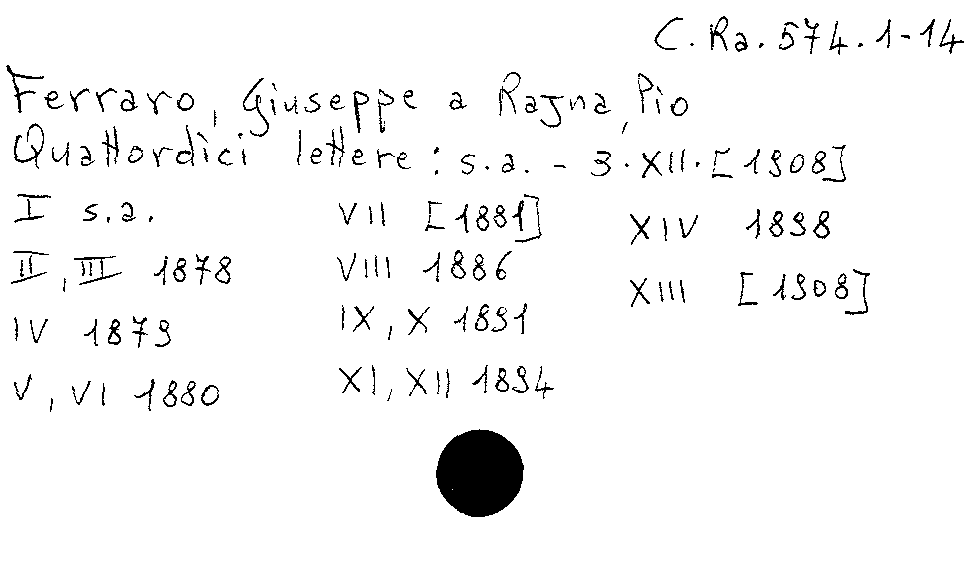 C.Ra.574.1-14
Ferraro, Giuseppe a Rajna, Pio
Quattordici lettere: s.a. - 3.XII.[1908]
I s.a.
II, III 1878
IV 1879
V, VI 1880
VII [1881]
VIII 1886
IX, X 1891
XI, XII 1894
XIV 1898
XIII [1908]